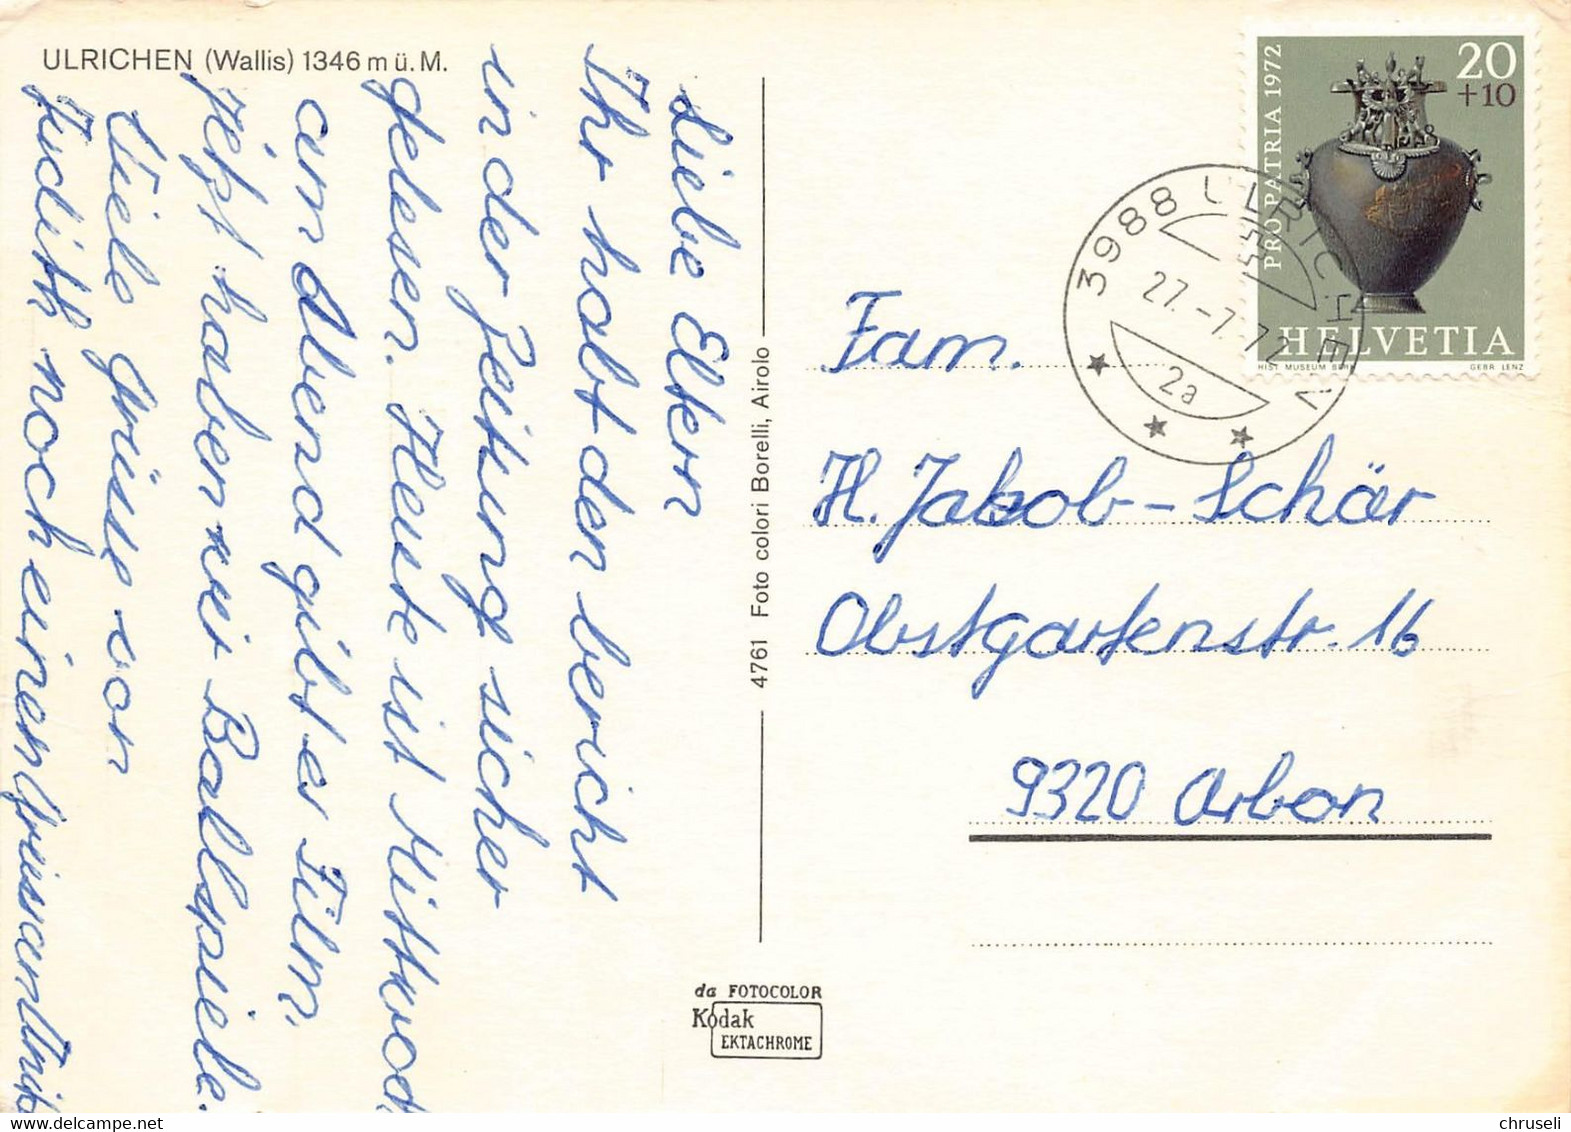 ULRICHEN (Wallis) 1346 m ü. M.
Liebe Eltern
Ihr habt den bericht
in der Zeitung sicher
gelesen. Heute ist Mittwoch,
am Abend gibt es Film.
Jetzt haben wir Ballspiele.
Viele Grüsse von
Judith noch einen
4761 Foto colori Borelli, Airolo
da FOTOCOLOR
Kodak
EKTACHROME
PRO PATRIA 1972
20
+10
HELVETIA
HIST. MUSEUM BERN
GEBR. LENZ
3988 ULRICHEN
27.-7.72
2a
Fam.
H. Jakob-Schär
Obstgartenstr. 16
9320 Arbon
chruseli